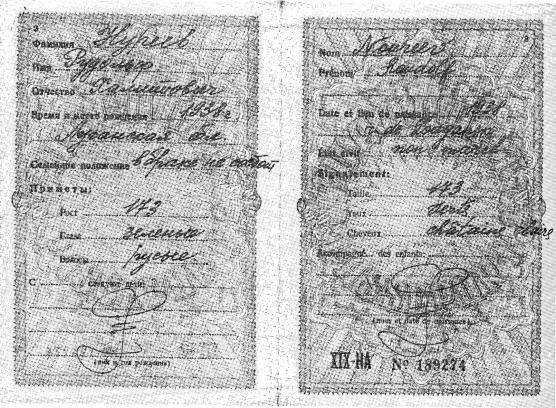 Фамилия Нуреев
Имя Рудольф
Отчество Хаметович
Время и место рождения 1938 г
Луганская обл
Семейное положение в браке не состоит
Приметы:
Рост 173
Глаза зеленые
Волосы русые
С следуют дети:
(имя и год рождения)
3
Nom Noureev
Prénom Rudolf
Date et lieu de naissance 1938
État civil non marié
Signalement:
Taille 173
Yeux verts
Cheveux châtains claire
Accompagné de ses enfants:
(nom et date de naissance)
XIX-НА № 189274